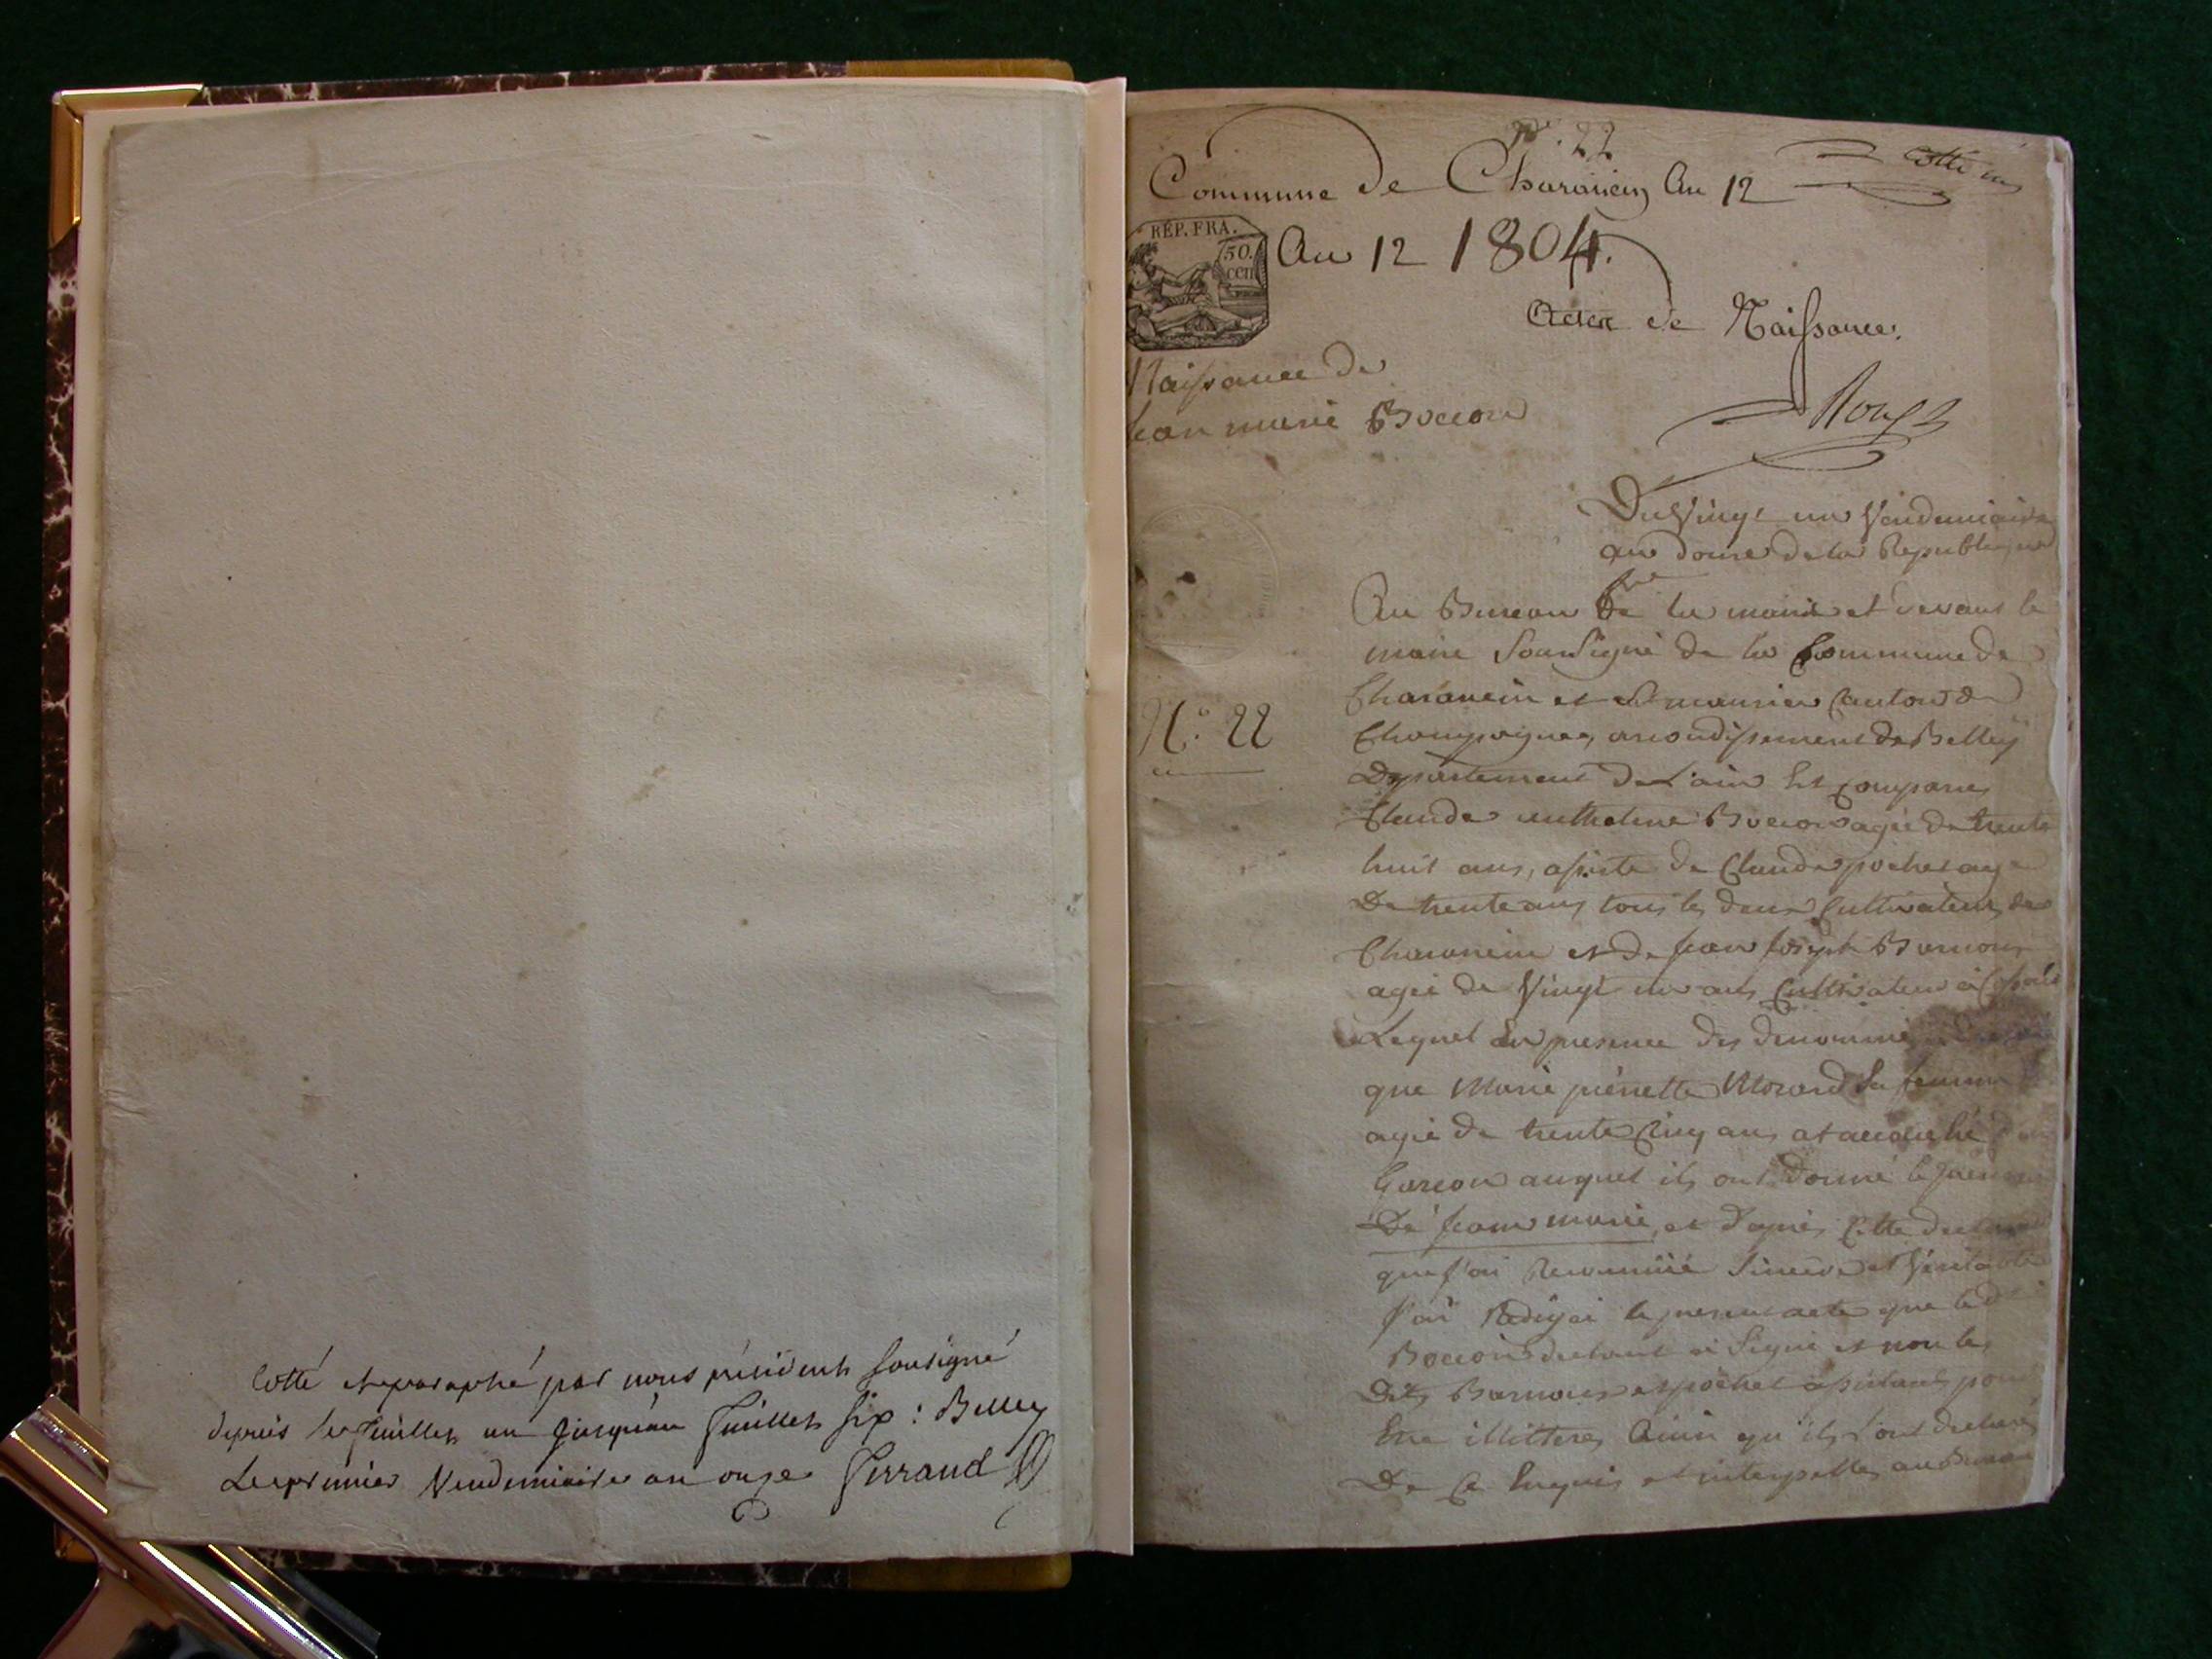 Cotté et paraphé par nous président soussigné
depuis le feuillet un jusqu'au feuillet six : Belley
Le premier Vendemiaire an onze Ferrand
N°. 22
Commune de Charancin An 12
Cotté un
REP. FRA.
50.
cen
An 12 1804.
Actes de Naissance.
Naissance de
Jean marie Boccon
Roux
Du Vingt un Vendemiaire
an douze de la Republique
Au Bureau de la mairie et devant le
maire Soussigné de la Commune de
Charancin et St maurice Canton de
Champagne, arrondissement de Belley
N°. 22
Departement de L'ain Est comparu
Claude anthelme Boccon agé de trente
huit ans, assisté de Claude pochet agé
De trente ans tous les deux Cultivateurs de
Charancin et de Jean Joseph
agé de Vingt un ans Cultivateur à
Lequel en presence des denommé
que Marie pierrette Morard Sa femme
agé de trente Cinq ans at accouché d'un
Garcon auquel ils ont Donné le prenom
De Jean marie, et d'aprés Cette
que J'ai Reconnüe Sincere et Véritable
J'ai Rédigé le present acte que led
Boccon declarant a Signé et non les
Dits et pochet assistants pour
Etre illitteres Ainsi qu'ils l'ont declaré
De Ce Enquis et interpellés au Bureau